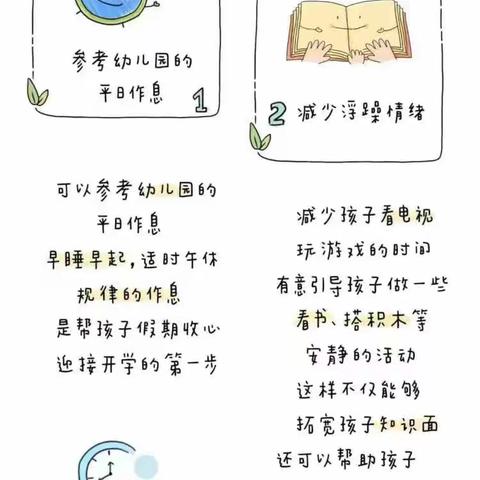 参考幼儿园的
平日作息
1
2 减少浮躁情绪
可以参考幼儿园的
平日作息
早睡早起,适时午休
规律的作息
是帮孩子假期收心
迎接开学的第一步
减少孩子看电视
玩游戏的时间
有意引导孩子做一些
看书、搭积木等
安静的活动
这样不仅能够
拓宽孩子知识面
还可以帮助孩子